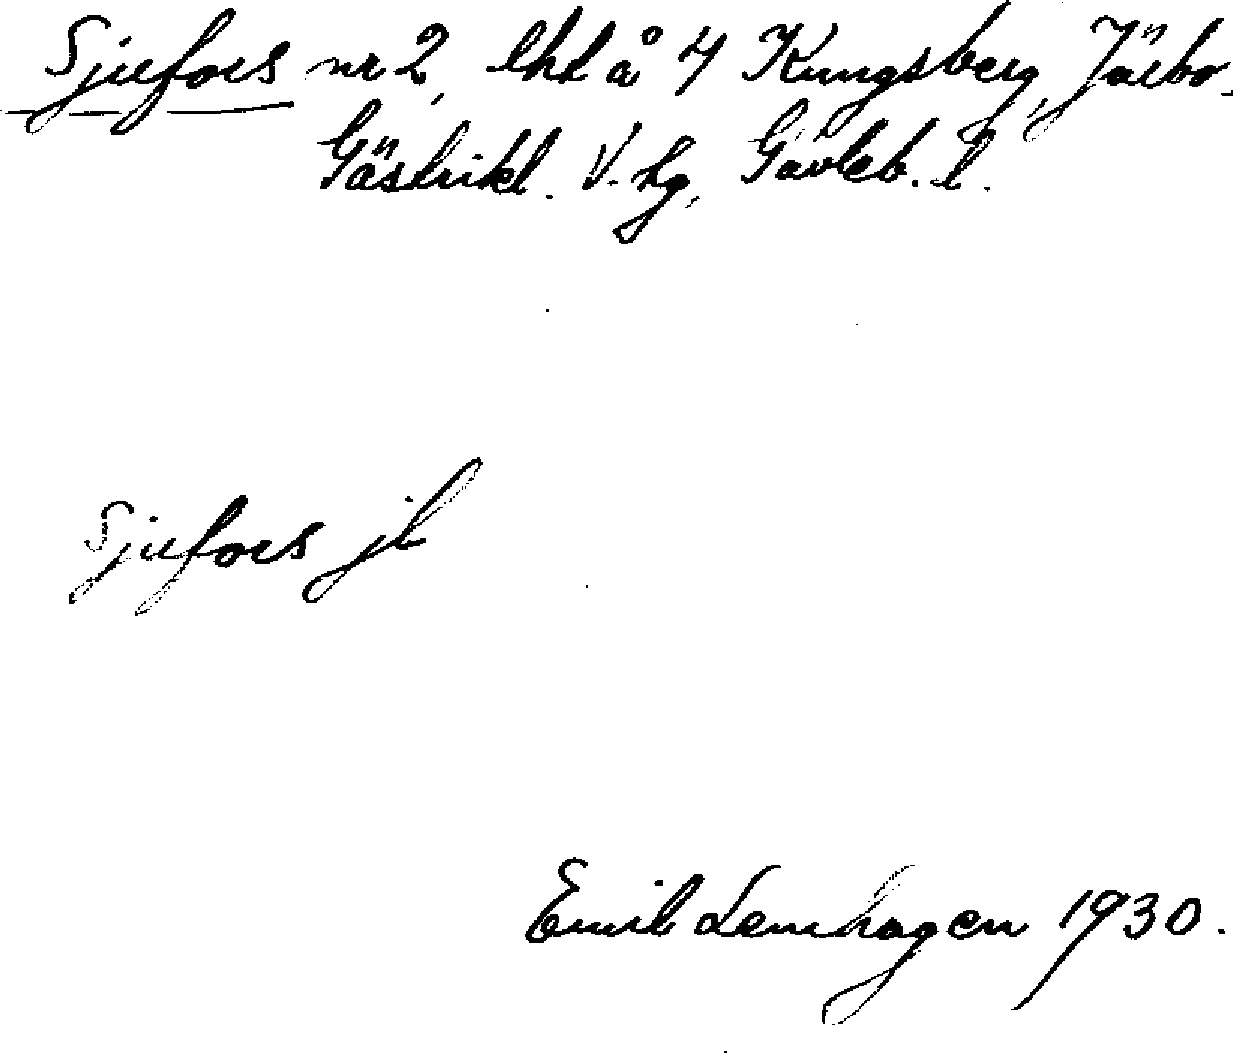 Sjufors nr 2, lht å 4 Kungsberg, Järbo.
Gästrikl. V. hg, Gävleb. l.
Sjufors jl
Emil Lemhagen 1930.